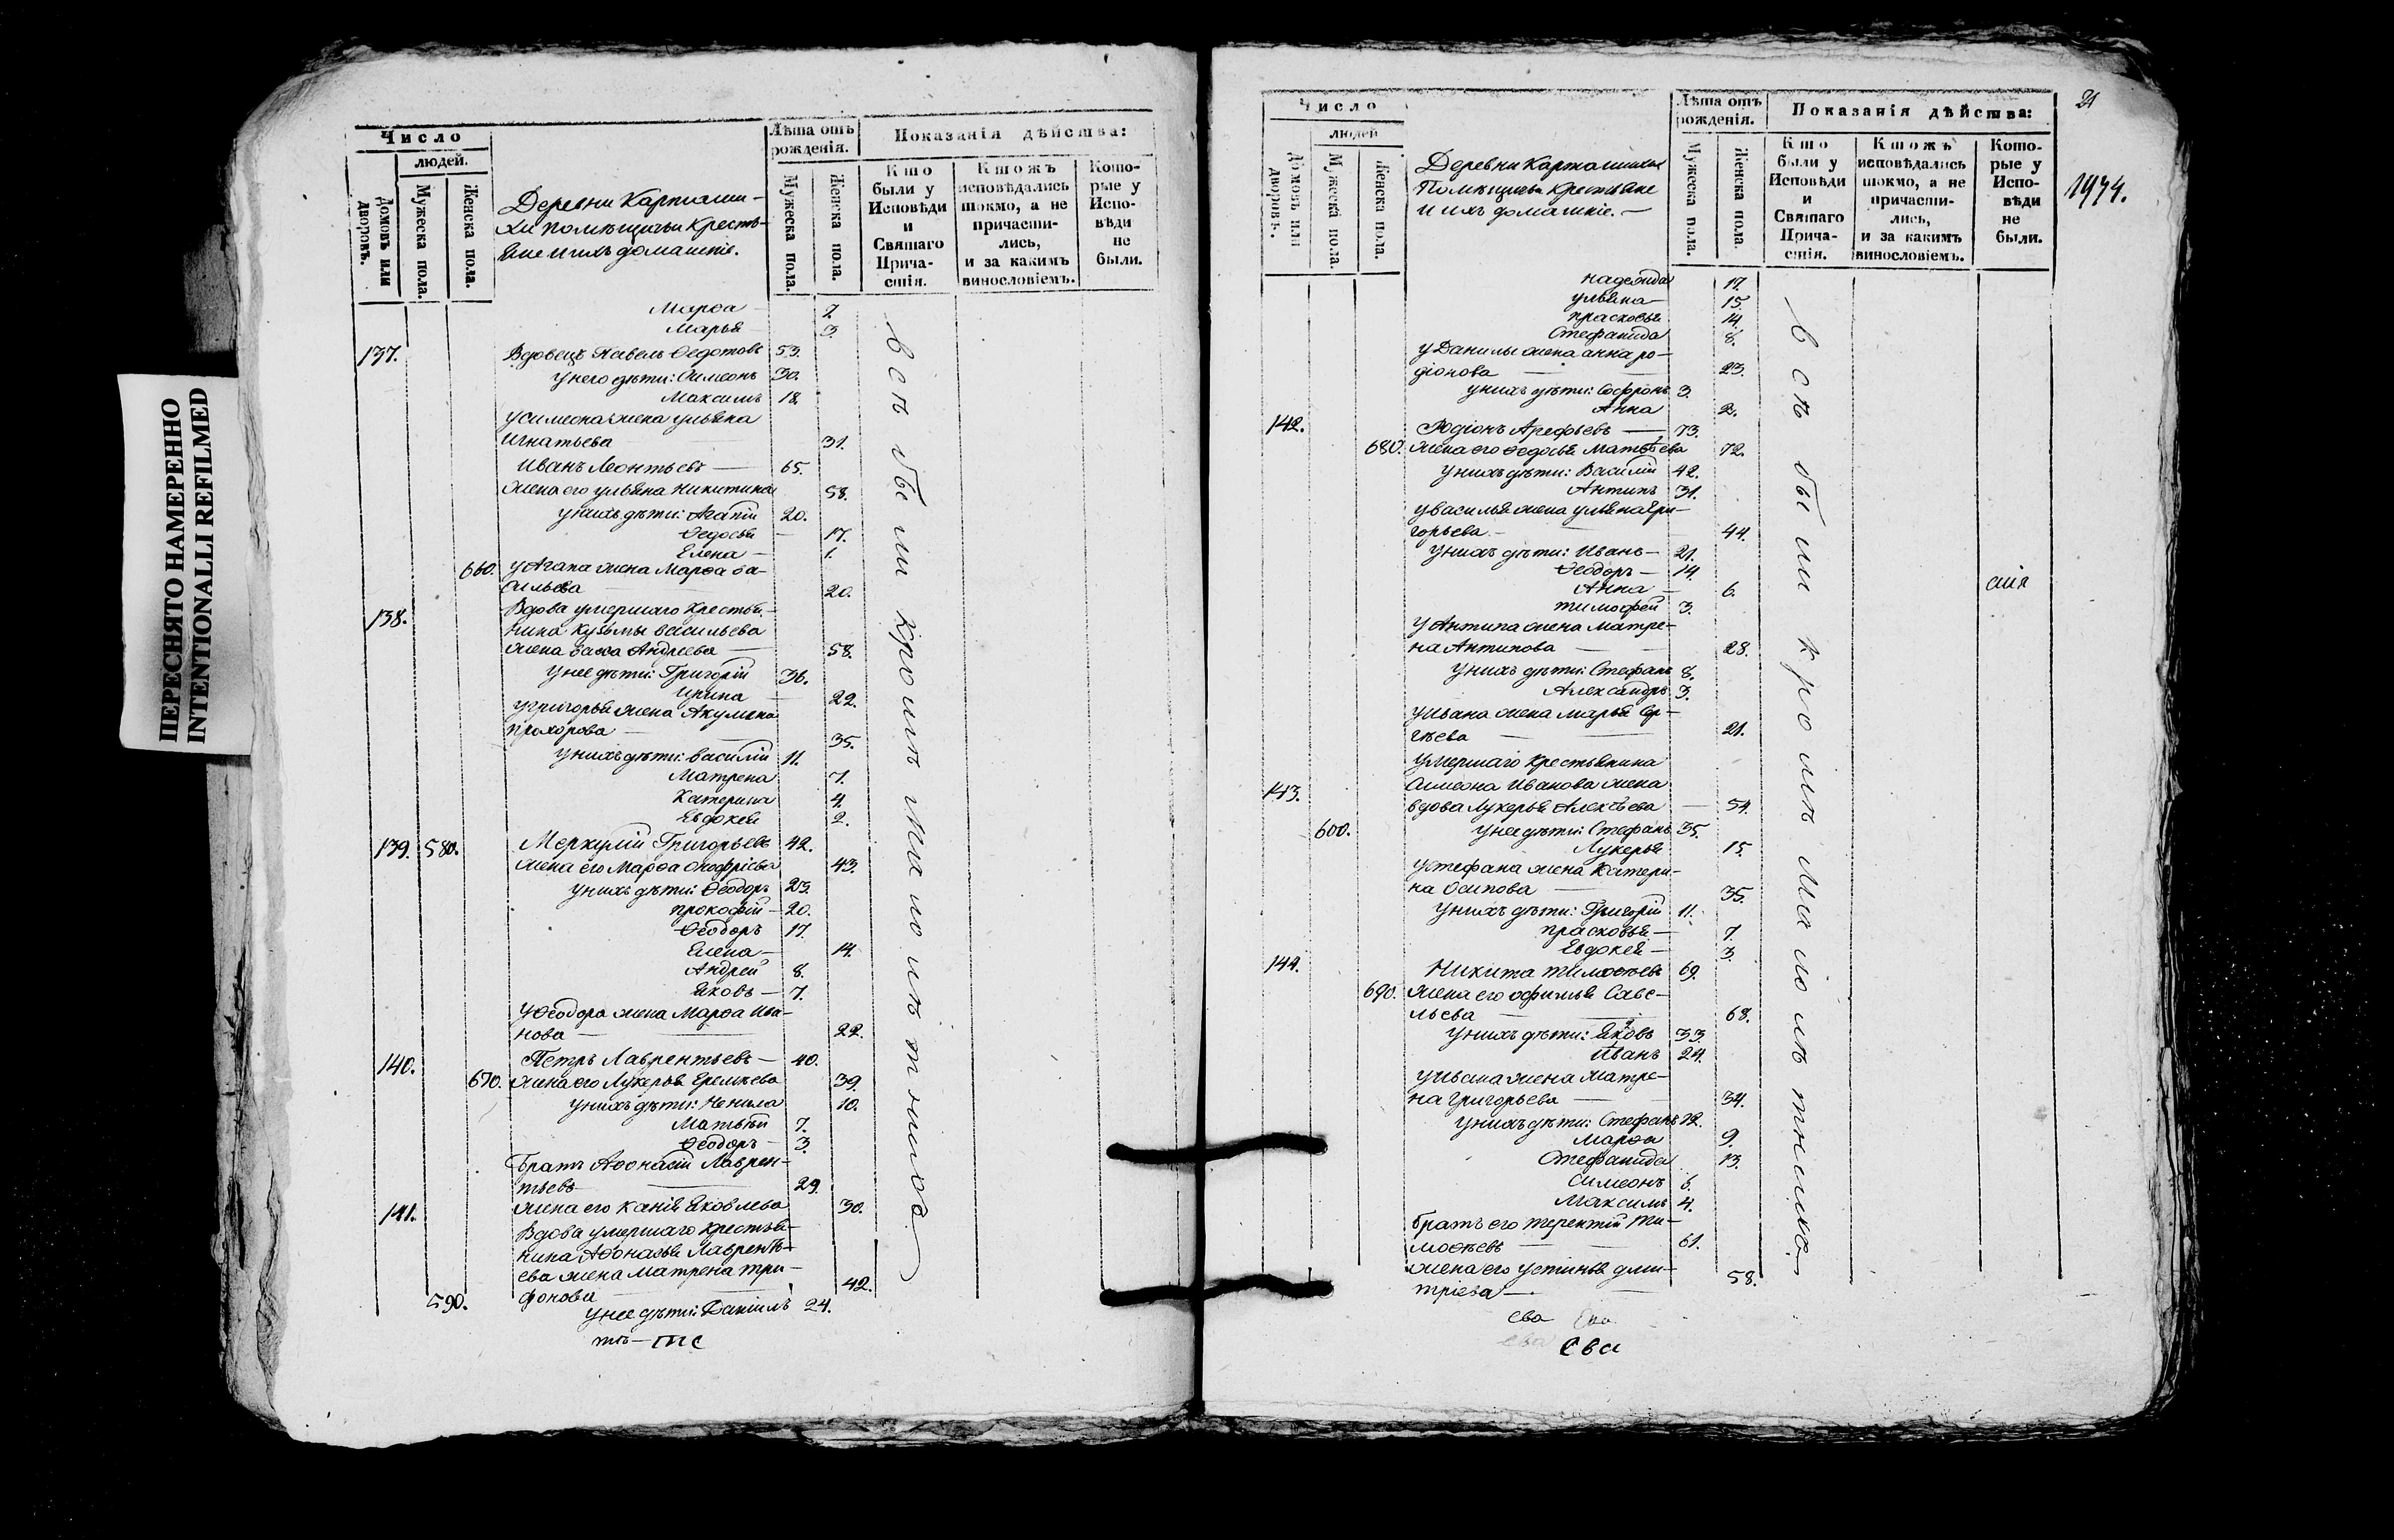 ПЕРЕСНЯТО НАМЕРЕННО
INTENTIONALLI REFILMED
Число
людей.
Домовъ или дворовъ.
Мужеска пола.
Женска пола.
Деревни Карташи-
хи помѣщичьи Кресть-
яне и ихъ домашніе.
Лѣта отъ рожденія.
Мужеска пола.
Женска пола.
Показанія дѣйства:
Кто были у Исповѣди и Святаго Причастія.
Ктожъ исповѣдались токмо, а не причастились, и за какимъ винословіемъ.
Которые у Исповѣди не были.
Марѳа — 7.
Марья — 3.
137. Вдовецъ Павелъ Ѳедотовъ 53.
у него дѣти: Симеонъ 30.
Максимъ 18.
у Симеона жена Ульяна
Игнатьева 31.
Иванъ Леонтьевъ — 65.
жена его Ульяна Никитина 58.
у нихъ дѣти: Агапій 20.
Ѳедосья — 17.
Елена — 1.
660. у Агапа жена Марѳа Ва-
сильева 20.
138. Вдова умершаго крестья-
нина Кузьмы Васильева
жена Васса Андреева — 58.
у нее дѣти: Григорій 36.
Ирина — 22.
у Григорья жена Акулина
Прохорова — 35.
у нихъ дѣти: Василій 11.
Матрена 7.
Катерина 4.
Евдокея 2.
139. 580. Меркулій Григорьевъ 42.
жена его Марѳа Онофріева 43.
у нихъ дѣти: Ѳеодоръ 23.
Прокофій — 20.
Ѳеодоръ 17.
Елена — 14.
Андрей 8.
Яковъ — 7.
у Ѳеодора жена Марѳа Ива-
нова — 22.
140. Петръ Лаврентьевъ — 40.
670. жена его Лукерья Еремѣева 39.
у нихъ дѣти: Ненила 10.
Матвѣй 7.
Ѳеодоръ — 3.
Братъ Аѳонасій Лаврен-
тьевъ — 29.
жена его Ксенія Яковлева 30.
141. Вдова умершаго крестья-
нина Аѳонасья Лаврентъ-
ева жена Матрена Три-
фонова — 42.
590. у нее дѣти: Даніилъ 24.
всѣ были кромѣ малолѣтныхъ
Число
людей
Домовъ или дворовъ.
Мужеска пола.
Женска пола.
Деревни Карташихи
Помѣщичьи Крестьяне
и ихъ домашніе. —
Лѣта отъ рожденія.
Мужеска пола.
Женска пола.
Показанія дѣйства:
Кто были у Исповѣди и Святаго Причастія.
Ктожъ исповѣдались токмо, а не причастились, и за какимъ винословіемъ.
Которые у Исповѣди не были.
21
1974.
Надежда 17.
Ульяна — 15.
Прасковья 14.
Стефанида 8.
у Данилы жена Анна Ро-
діонова — 23.
у нихъ дѣти: Софронъ 3.
Анна 2.
142. Родіонъ Арефьевъ — 73.
680. жена его Ѳедосья Матвѣева 72.
у нихъ дѣти: Василій 42.
Антипъ 31.
у Василья жена Ульяна Гри-
горьева — 44.
у нихъ дѣти: Иванъ — 21.
Ѳеодоръ — 14.
Анна — 6.
Тимофей 3.
у Антипа жена Матре-
на Антипова — 28.
у нихъ дѣти: Стефанъ 8.
Александръ 3.
у Ивана жена Марья Сер-
гѣева — 21.
умершаго крестьянина
143. Симеона Иванова жена
вдова Лукерья Алексѣева — 54.
600. у нее дѣти: Стефанъ 35.
Лукерья 15.
у Стефана жена Катери-
на Осипова — 35.
у нихъ дѣти: Григорій 11.
Прасковья — 7.
Евдокея — 3.
144. Никита Тимоѳѣевъ 69.
690. жена его Офимья Саве-
льева — 68.
у нихъ дѣти: Яковъ 33.
Иванъ 24.
у Ивана жена Матре-
на Григорьева — 34.
у нихъ дѣти: Стефанъ 12.
Марѳа 9.
Стефанида 13.
Симеонъ 6.
Максимъ 4.
братъ его Терентій Ти-
моѳѣевъ — 61.
жена его Устинья Дми-
тріева — 58.
ева
ева
всѣ были кромѣ малолѣтныхъ